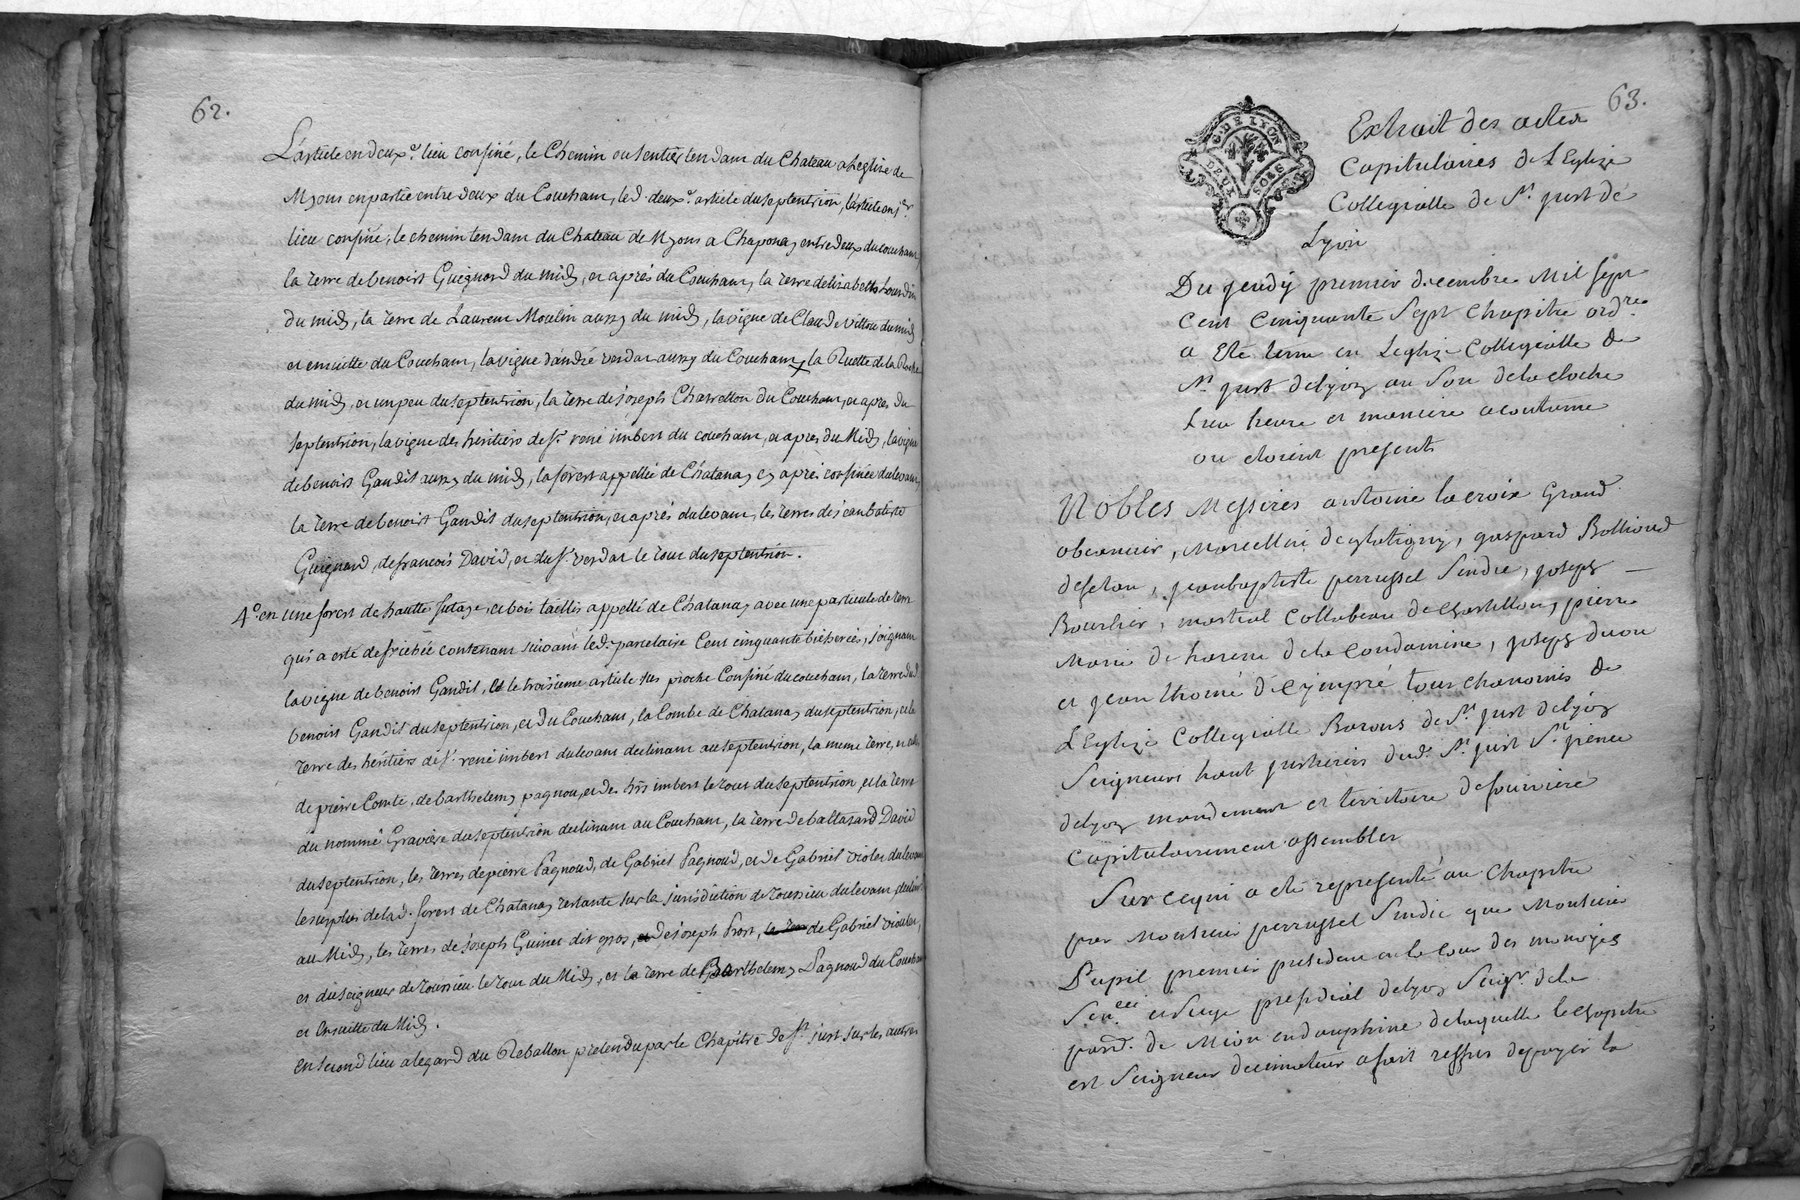 62.
L'article en deux.e lieu confiné, le Chemin ou sentier tendant du Chateau a Leglize de
Myons en partie entre deux du Couchant, led. deux.e article du septentrion, l'article en 1.er
lieu confiné, le chemin tendant du Chateau de Myons a Chaponay entre deux du couchant
la terre de benoist Guignard du midy, et aprés du Couchant, la terre delizabeth Lourdin
du midy, la terre de Laurent Moulin aussy du midy, la vigne de Claude Villon du midy
et ensuitte du Couchant, la vigne d'andré verdat aussy du Couchant, la Ruette de la Roche
du midy, et un peu du septentrion, la terre de joseph Charreton du Couchant, et apres du
septentrion, la vigne des heritiers de sr. rené imbert du couchant, et apres du Midy, la vigne
de benoist Gandit aussy du midy, la forest appellée de Chatanay cy aprés confinée du levant,
la terre de benoist Gandit du septentrion, et aprés du levant, les terres de jean batiste
Guignard, de francois David, et du sr. verdat le tour du septentrion.
4.o en une forest de hautte futaye, et bois taillis appellé de Chatanay avec une particule de terre
qui a esté defrichée contenant suivant led. parcelaire Cent cinquante bicherées, joignant
la vigne de benoist Gandit, et le troisieme article sus proche Confiné du couchant, la terre dud
benoist Gandit du septentrion, et du Couchant, la Combe de Chatanay du septentrion, et la
terre des héritiers de sr. rené imbert du levant declinant au septentrion, la meme terre, et celle
de pierre Comte, de barthelemy pagnou, et des hrs imbert le tour du septentrion, et la terre
du nommé Gravier du septentrion declinant au Couchant, la terre de baltazard David
du septentrion, les terres de pierre Pagnoud, de Gabriel Pagnoud, et de Gabriel violet du levant
le surplus de lad. forest de Chatanay restante sur la jurisdiction de toussieu du levant declinant
au Midy, les terres de joseph Guinet dit gros, et de joseph Prost, la terre de Gabriel violet,
et du seigneur de toussieu le tour du Midy, et la terre de Barthelemy Pagnoud du Couchant
et Ensuitte du Midy.
En second lieu a legard du Reballon prétendu par le Chapitre de st. just sur les autres
63.
G. DE LYON
DEUX SOLS
Extrait des actes
Capitulaires de L'Eglize
Collegialle de St. just de
Lyon
Du jeudy premier decembre Mil sept
cent cinquante sept Chapitre ordre.
a Eté tenu en Leglize Collegialle de
St. just de lyon au son de la cloche
Lieu heure et maniere acoutume
ou etoient presents
Nobles Messires antoine lacroix Grand
obeancier, Marcellin de glatigny, gaspard Bollioud
defetan, jean baptiste perrussel Sindic, joseph
Bourlier, martial Collabeau de Chastillon, pierre
Marie de harene de la Condamine, joseph duon
et jean thomé d'Eympré tous chanoines de
L'Eglize Collegialle Barons de St. just de lyon
Seigneurs haut justiciers dud. St. just St. jrenée
de lyon mandement et territoire de fourviere
Capitulairement assembles
Sur ce qui a eté representé au Chapitre
par Monsieur perrussel Sindic que Monsieur
Pupil premier president en la cour des monoyes
Sen.ee et siege presidial de lyon Seigr. de la
parr. de Mion en dauphine de laquelle le Chapitre
est Seigneur decimateur a fait reffus de payer la